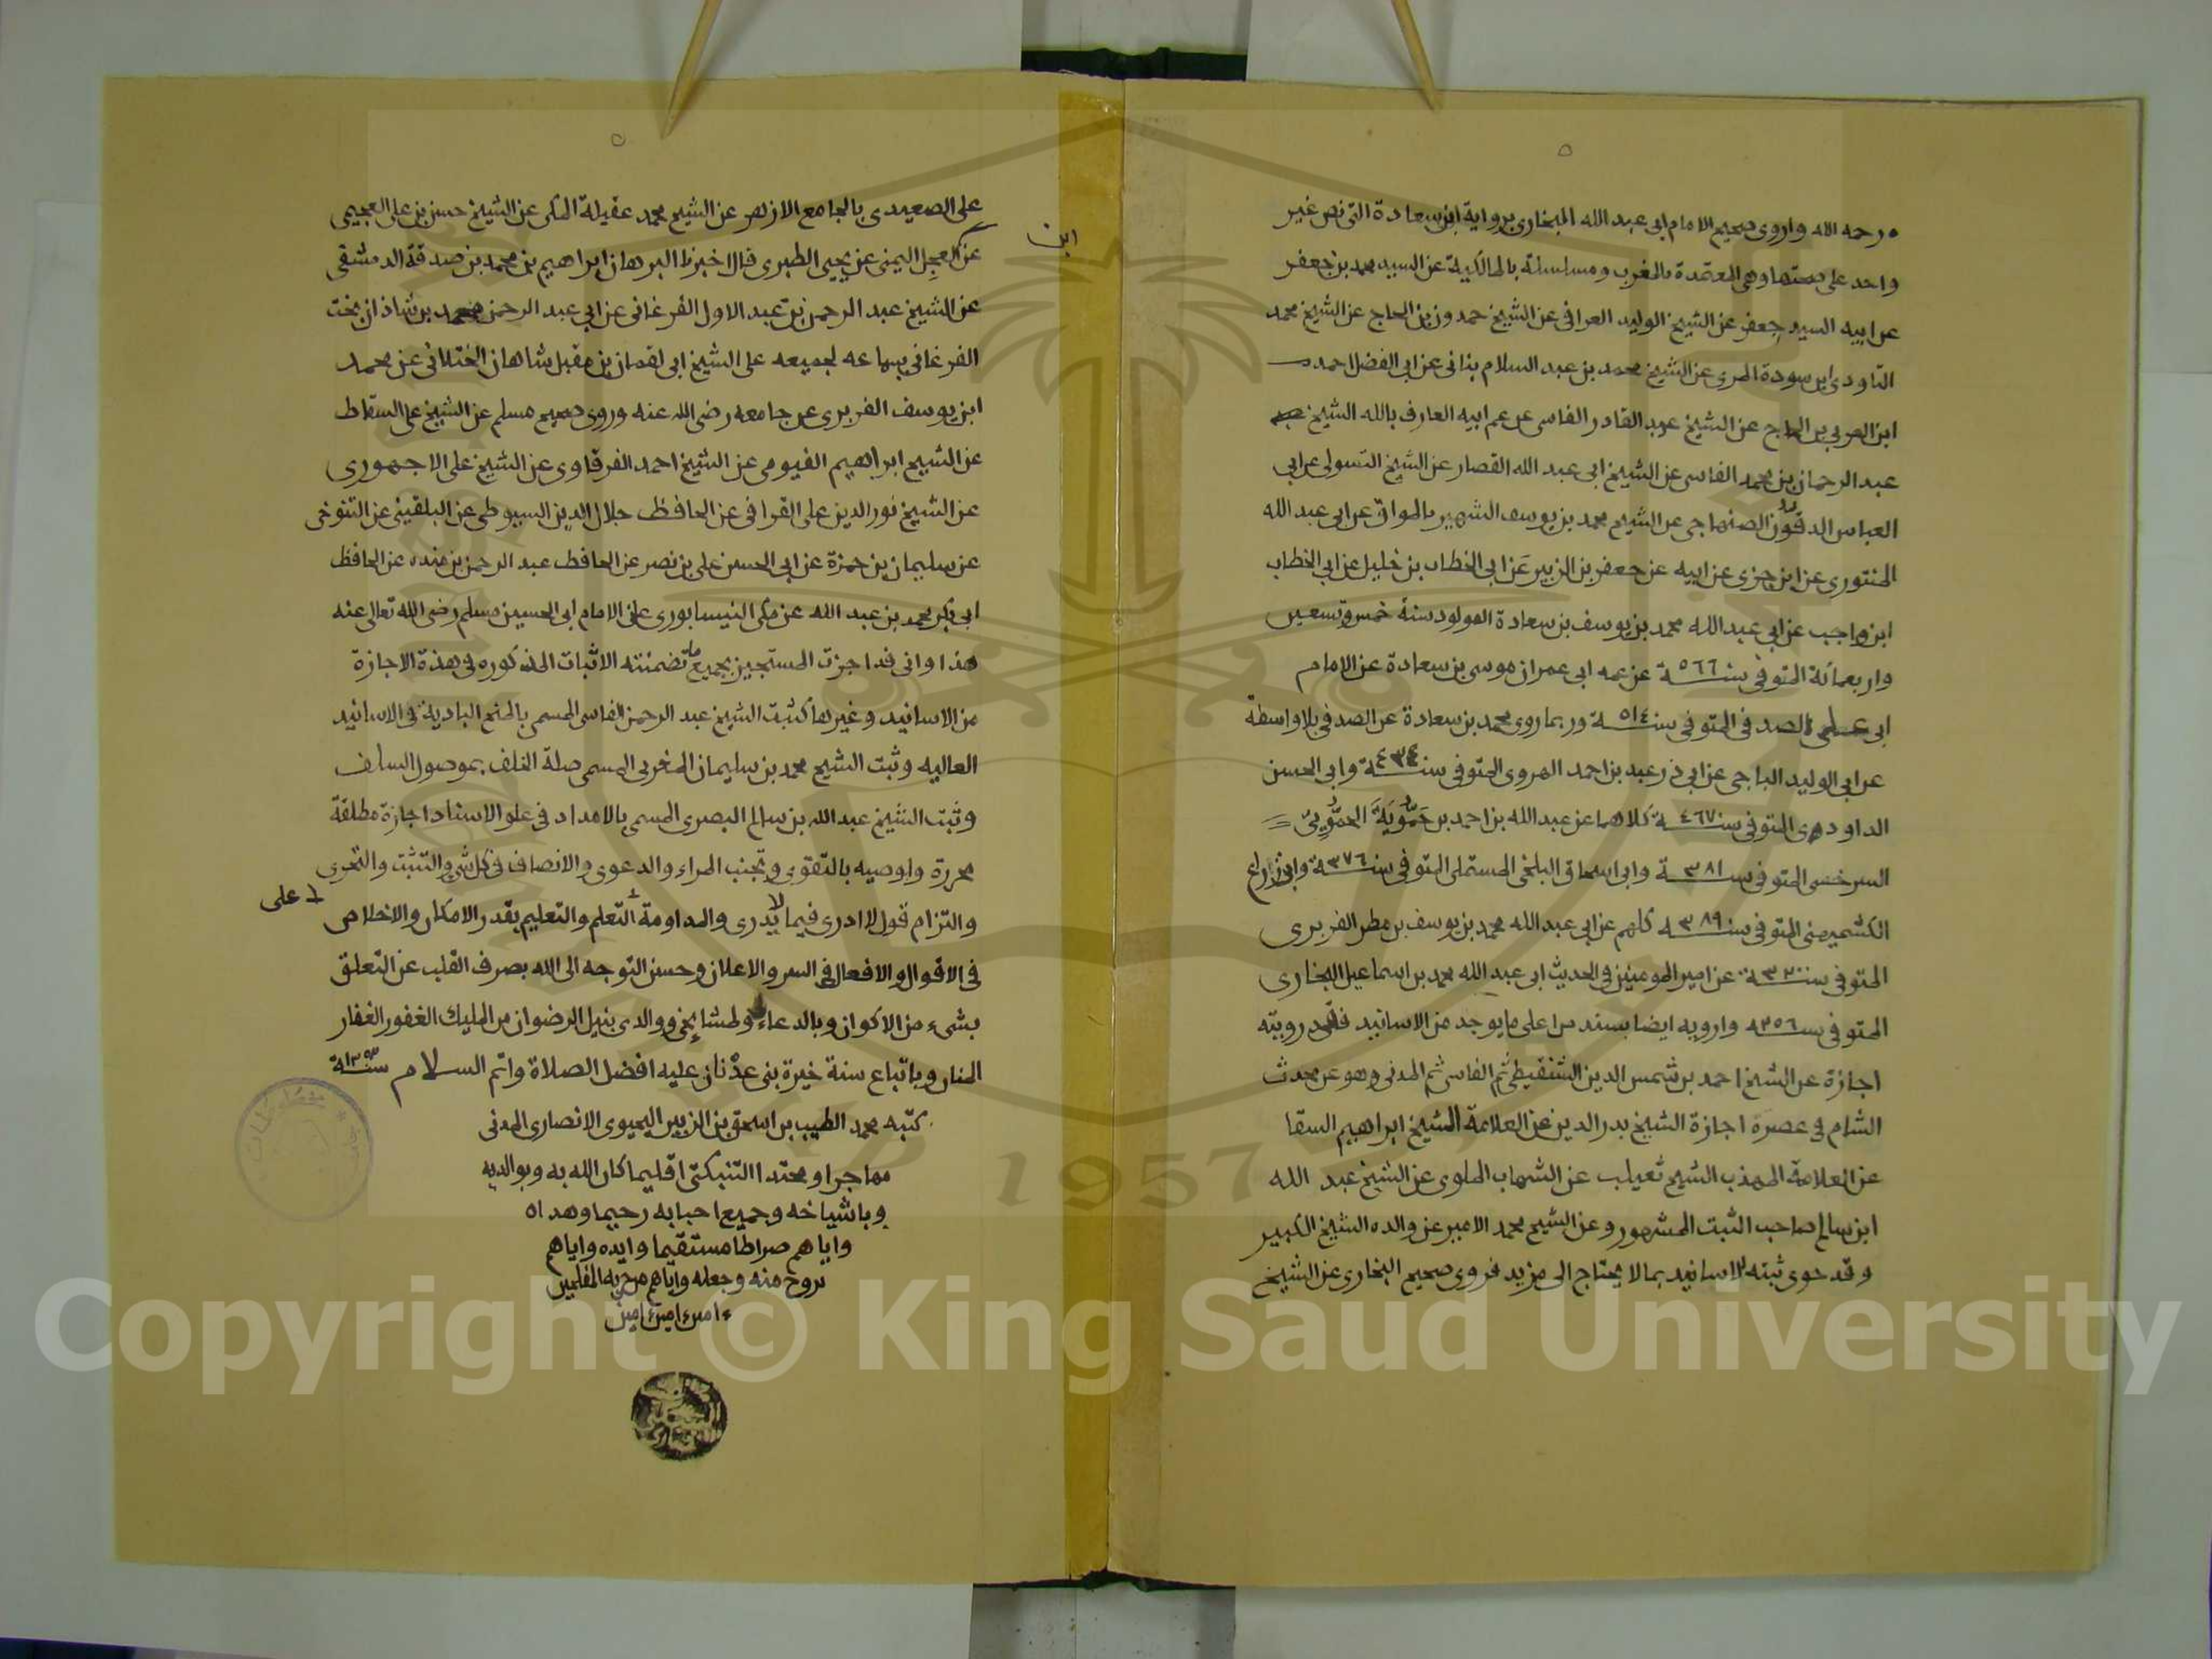 ٥
رحمه الله واروى صحيح الامام ابى عبد الله البخارى برواية ابن سعادة التى نص غير
واحد على صحتها وهى المعتمدة بالمغرب ومسلسلة بالمالكية عن السيد محمد بن جعفر
عن ابيه السيد جعفر عن الشيخ الوليد العراقى عن الشيخ حمدون بن الحاج عن الشيخ محمد
التاودى ابن سودة المرى عن الشيخ محمد بن عبد السلام بنانى عن ابى الفضل احمد
ابن العربى بن الحاج عن الشيخ عبد القادر الفاسى عن عم ابيه العارف بالله الشيخ
عبد الرحمان بن محمد الفاسى عن الشيخ ابى عبد الله القصار عن الشيخ التسولى عن ابى
العباس الدقون الصنهاجى عن الشيخ محمد بن يوسف الشهير بالمواق عن ابى عبد الله
المنتورى عن ابن جزى عن ابيه عن جعفر بن الزبير عن ابى الخطاب بن خليل عن ابى الخطاب
ابن واجب عن ابى عبد الله محمد بن يوسف بن سعادة المولود سنة خمس وتسعين
واربعمائة المتوفى سنة ٥٦٦ عن عمه ابى عمران موسى بن سعادة عن الامام
ابى على الصدفى المتوفى سنة ٥١٤ وربما روى محمد بن سعادة عن الصدفى بلا واسطة
عن ابى الوليد الباجى عن ابى ذر عبد بن احمد الهروى المتوفى سنة ٤٣٤ وابى الحسن
الداودى المتوفى سنة ٤٦٧ كلاهما عن عبد الله بن احمد بن حمّويَة الحمّويىّ
السرخسى المتوفى سنة ٣٨١ وابى اسحاق البلخى المستملى المتوفى سنة ٣٧٦ وابى
الكشميهنى المتوفى سنة ٣٨٩ كلهم عن ابى عبد الله محمد بن يوسف بن مطر الفربرى
المتوفى سنة ٣٢٠ عن امير المومنين فى الحديث ابى عبد الله محمد بن اسماعيل البخارى
المتوفى سنة ٢٥٦ وارويه ايضا بسند من اعلى ما يوجد من الاسانيد فقد رويته
اجازة عن الشيخ احمد بن شمس الدين الشنقيطى ثم الفاسى ثم المدنى وهو عن محدث
الشام فى عصره اجازة الشيخ بدر الدين عن العلامة الشيخ ابراهيم السقا
عن العلامة المهذب الشيخ ثعيلب عن الشهاب الملوى عن الشيخ عبد الله
ابن سالم صاحب الثبت المشهور وعن الشيخ محمد الامير عن والده الشيخ الكبير
وقد حوى ثبته الاسانيد بما لا يحتاج الى مزيد فروى صحيح البخارى عن الشيخ
٥
على الصعيدى بالجامع الازهر عن الشيخ محمد عقيلة المكى عن الشيخ حسن بن على العجيمى
ابن
عن العجل اليمنى عن يحيى الطبرى قال اخبرنا البرهان ابراهيم بن محمد بن صدقة الدمشقى
عن الشيخ عبد الرحمن بن عبد الاول الفرغانى عن ابى عبد الرحمن محمد بن شاذان بخت
الفرغانى بسماعه لجميعه على الشيخ ابى لقمان بن مقبل شاهان الختلانى عن محمد
ابن يوسف الفربرى عن جامعه رضى الله عنه وروى صحيح مسلم عن الشيخ على السقاط
عن الشيخ ابراهيم الفيومى عن الشيخ احمد الفرقاوى عن الشيخ على الاجهورى
عن الشيخ نور الدين على القرافى عن الحافظ جلال الدين السيوطى عن البلقينى عن التنوخى
عن سليمان بن حمزة عن ابى الحسن على بن نصر عن الحافظ عبد الرحمن بن منده عن الحافظ
ابى بكر محمد بن عبد الله عن مكى النيسابورى عن الامام ابى الحسين مسلم رضى الله تعالى عنه
هذا وانى قد اجزت المستجيز بجميع ما تضمنته الاثبات المذكوره فى هذة الاجازة
من الاسانيد وغيرها كثبت الشيخ عبد الرحمن الفاسى المسمى بالمنح البادية فى الاسانيد
العاليه وثبت الشيخ محمد بن سليمان المغربى المسمى صلة الخلف بموصول السلف
وثبت الشيخ عبد الله بن سالم البصرى المسمى بالامداد فى علو الاسناد اجازة مطلقة
محررة واوصيه بالتقوى وتجنب المراء والدعوى والانصاف فى كل شىء والتثبت والتحرى
والتزام قول لا ادرى فيما لا يدرى والمداومة التعلم والتعليم بقدر الامكان والاخلاص
على
فى الاقوال والافعال فى السر والاعلان وحسن التوجه الى الله بصرف القلب عن التعلق
بشىء من الاكوان وبالدعاء ولمشايخى ووالدى بنيل الرضوان من المليك الغفور الغفار
المنان وباتباع سنة خيرة بنى عدنان عليه افضل الصلاة واتم السلام سنة ١٣٥٣
كتبه محمد الطيب بن اسحق بن الزبير اليحيوى الانصارى المدنى
مهاجرا ومحتدا التنبكتى اقليما كان الله به وبوالديه
وباشياخه وجميع احبابه رحيما وهداه
واياهم صراطا مستقيما وايده واياهم
بروح منه وجعله واياهم من حزبه المفلحين
امين امين امين
1957
Copyright © King Saud University